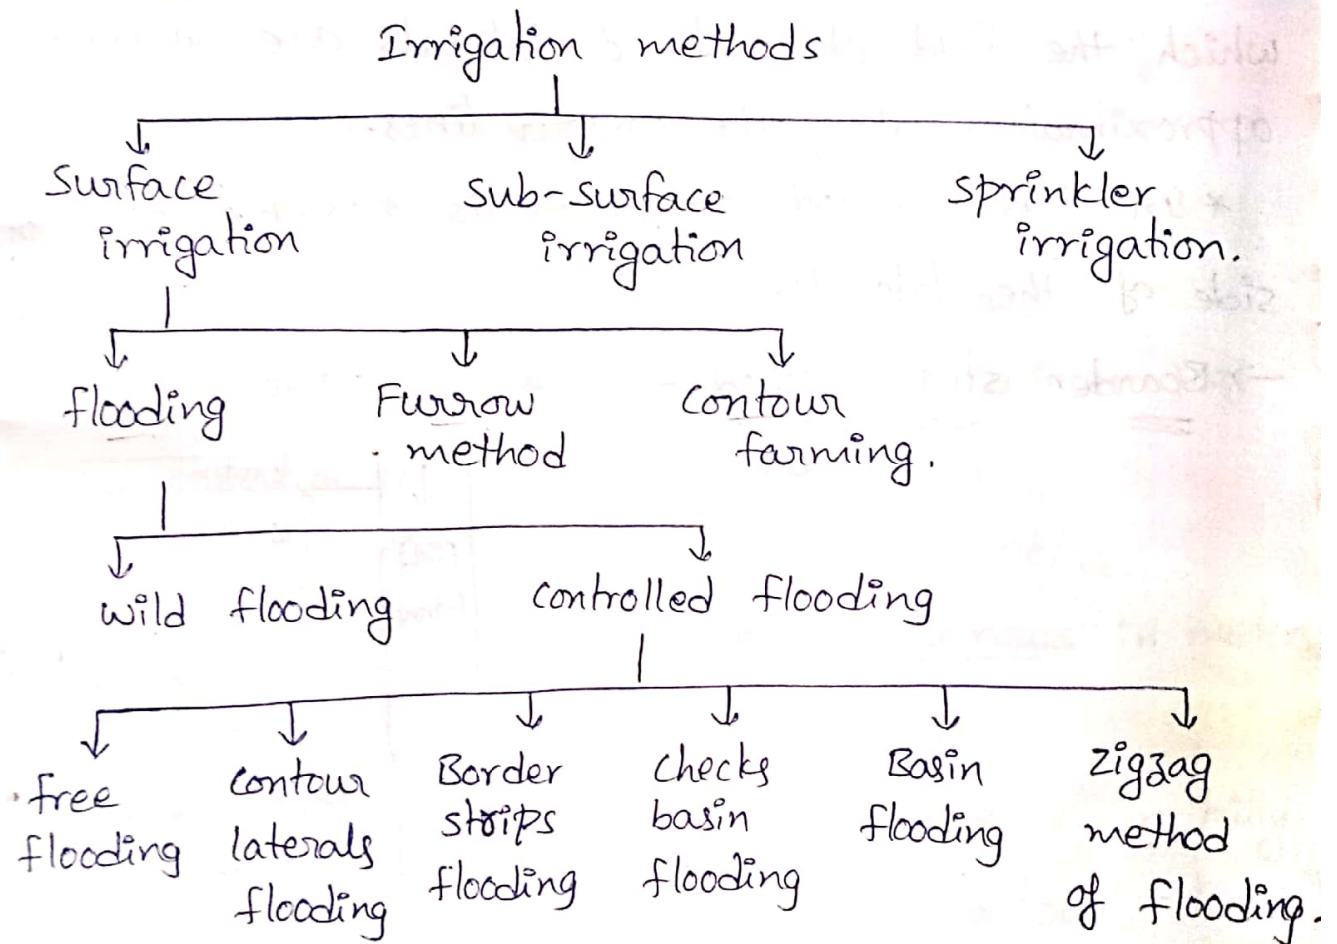 Irrigation methods
Surface irrigation
Sub-surface irrigation
Sprinkler irrigation.
flooding
Furrow method
Contour farming.
wild flooding
controlled flooding
free flooding
Contour laterals flooding
Border strips flooding
Checks basin flooding
Basin flooding
Zigzag method of flooding.